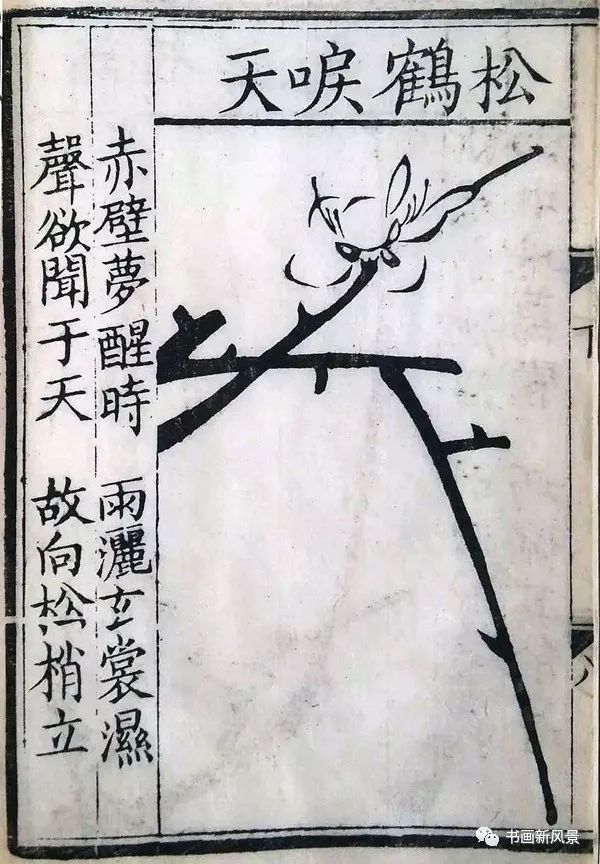 松鶴唳天
赤壁夢醒時　雨灑玄裳濕
聲欲聞于天　故向松梢立
书画新风景